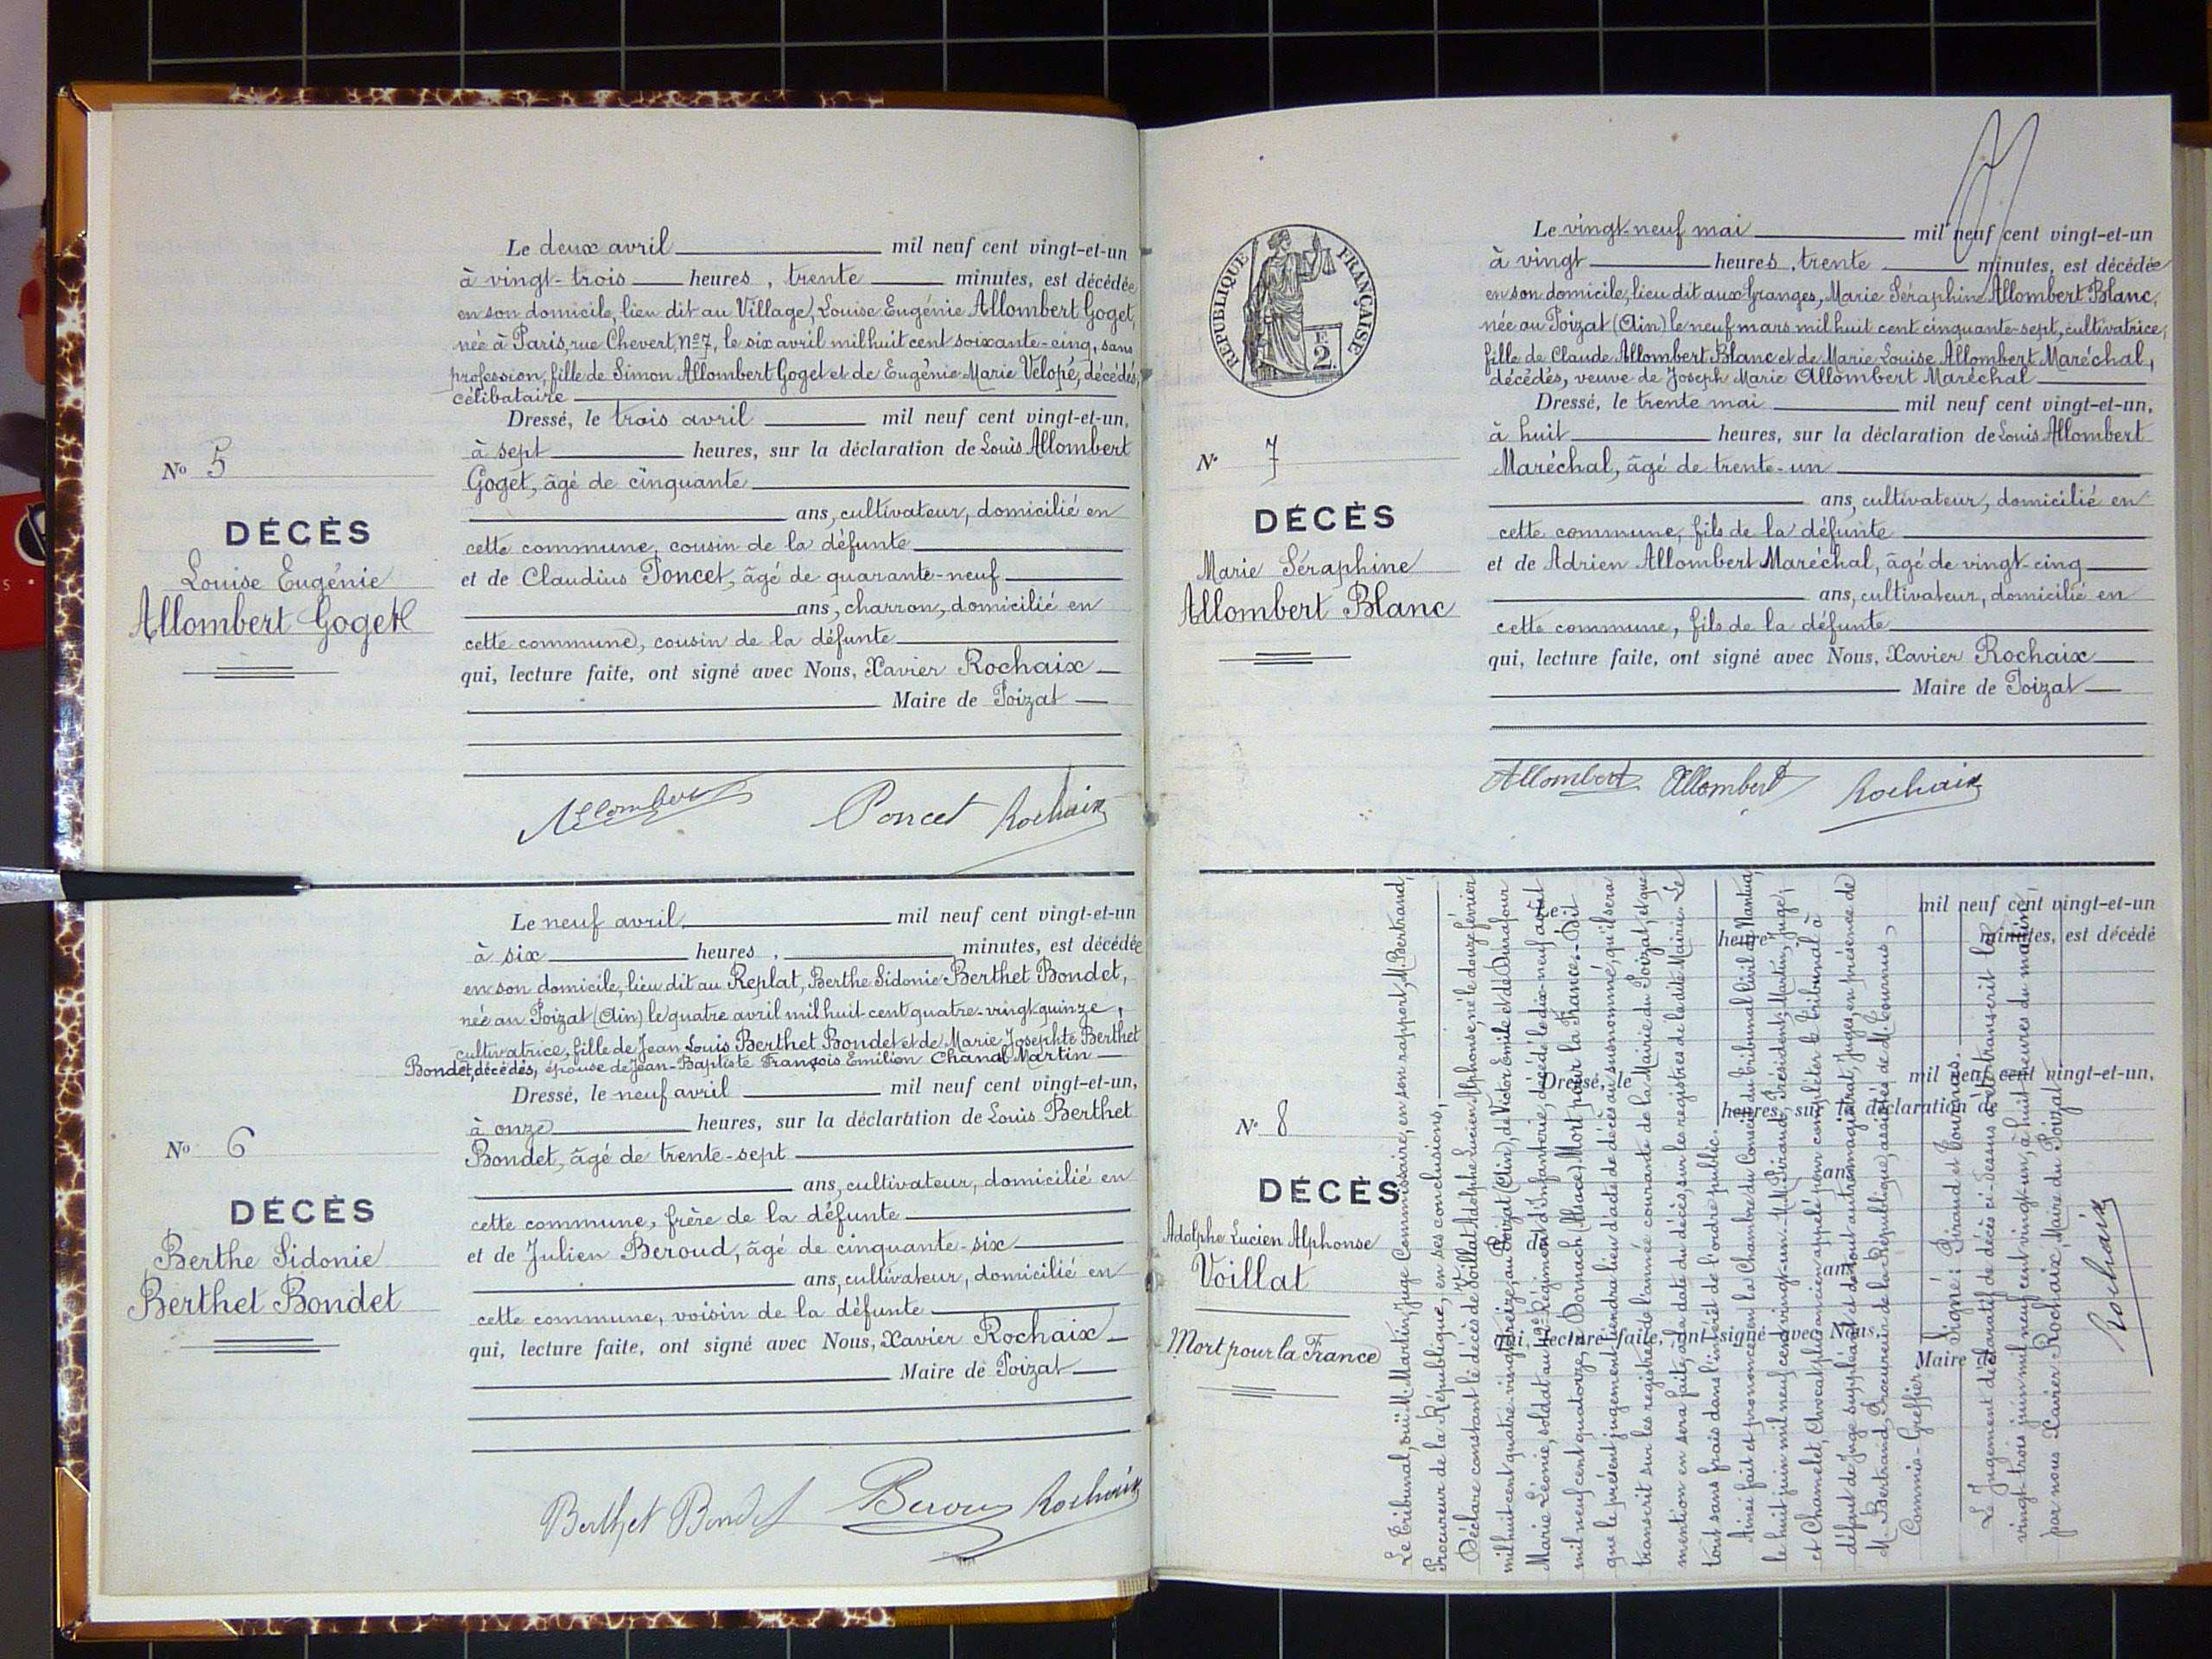 Le deux avril mil neuf cent vingt-et-un
à vingt-trois heures, trente minutes, est décédée
en son domicile, lieu dit au Village, Louise Eugénie Allombert Goget,
née à Paris, rue Chevert, Nº 7, le six avril mil huit cent soixante-cinq, sans
profession, fille de Simon Allombert Goget et de Eugénie Marie Velopé, décédés,
célibataire
Dressé, le trois avril mil neuf cent vingt-et-un,
à sept heures, sur la déclaration de Louis Allombert
Goget, âgé de cinquante
ans, cultivateur, domicilié en
cette commune, cousin de la défunte
et de Claudius Poncet, âgé de quarante-neuf
ans, charron, domicilié en
cette commune, cousin de la défunte
qui, lecture faite, ont signé avec Nous, Xavier Rochaix
Maire de Poizat
No 5
DÉCÈS
Louise Eugénie
Allombert Goget
Allombert Poncet Rochaix
Le neuf avril mil neuf cent vingt-et-un
à six heures, minutes, est décédée
en son domicile, lieu dit au Replat, Berthe Sidonie Berthet Bondet,
née au Poizat (Ain) le quatre avril mil huit cent quatre-vingt quinze,
cultivatrice, fille de Jean Louis Berthet Bondet et de Marie Josephte Berthet
Bondet, décédés, épouse de Jean-Baptiste François Emilien Chanal Martin
Dressé, le neuf avril mil neuf cent vingt-et-un,
à onze heures, sur la déclaration de Louis Berthet
Bondet, âgé de trente-sept
ans, cultivateur, domicilié en
cette commune, frère de la défunte
et de Julien Beroud, âgé de cinquante-six
ans, cultivateur, domicilié en
cette commune, voisin de la défunte
qui, lecture faite, ont signé avec Nous, Xavier Rochaix
Maire de Poizat
No 6
DÉCÈS
Berthe Sidonie
Berthet Bondet
Berthet Bondet Rochaix
RÉPUBLIQUE FRANÇAISE
2
Le vingt-neuf mai mil neuf cent vingt-et-un
à vingt heures, trente minutes, est décédée
en son domicile, lieu dit aux Granges, Marie Séraphine Allombert Blanc,
née au Poizat (Ain) le neuf mars mil huit cent cinquante-sept, cultivatrice,
fille de Claude Allombert Blanc et de Marie Louise Allombert Maréchal,
décédés, veuve de Joseph Marie Allombert Maréchal
Dressé, le trente mai mil neuf cent vingt-et-un,
à huit heures, sur la déclaration de Louis Allombert
Maréchal, âgé de trente-un
ans, cultivateur, domicilié en
cette commune, fils de la défunte
et de Adrien Allombert Maréchal, âgé de vingt-cinq
ans, cultivateur, domicilié en
cette commune, fils de la défunte
qui, lecture faite, ont signé avec Nous, Xavier Rochaix
Maire de Poizat
No 7
DÉCÈS
Marie Séraphine
Allombert Blanc
Allombert Allombert Rochaix
No 8
DÉCÈS
Adolphe Lucien Alphonse
Voillat
Mort pour la France
Le mil neuf cent vingt-et-un
heures minutes, est décédé
Dressé, le mil neuf cent vingt-et-un,
heures, sur la déclaration de
ans
ans
qui, lecture faite, ont signé avec Nous,
Maire de
Le Tribunal, ouï M. Martin, Juge Commissaire, en son rapport, M. Bertrand,
Procureur de la République, en ses conclusions,
Déclare constant le décès de Voillat Adolphe Lucien Alphonse, né le douze février
mil huit cent quatre-vingt treize, au Poizat (Ain), de Victor Emile et de Dunafour
Marie Léonie, soldat au Régiment d'Infanterie, décédé le dix-neuf août
mil neuf cent quatorze, à Dornach (Alsace), Mort pour la France. Dit
que le présent jugement tiendra lieu d'acte de décès au susnommé, qu'il sera
transcrit sur les registres de l'année courante de la Mairie du Poizat, et que
mention en sera faite, à la date du décès, sur les registres de ladite Mairie. Le
tout sans frais dans l'intérêt de l'ordre public.
Ainsi fait et prononcé en la Chambre du Conseil du tribunal Civil de Nantua,
le huit juin mil neuf cent vingt-un. M.M. Pirand, Président, Martin, Juge,
et Chamelet, Avocat plus ancien appelé pour compléter le tribunal à
défaut de Juge suppléant et de tout autre magistrat, Juges, en présence de
M. Bertrand, Procureur de la République, assistés de M. Tournus,
Commis-Greffier. Signé: Pirand et Tournus.
Le Jugement déclaratif de décès ci-dessus a été transcrit le
vingt-trois juin mil neuf cent vingt-un, à huit heures du matin
par nous Xavier Rochaix, Maire du Poizat
Rochaix